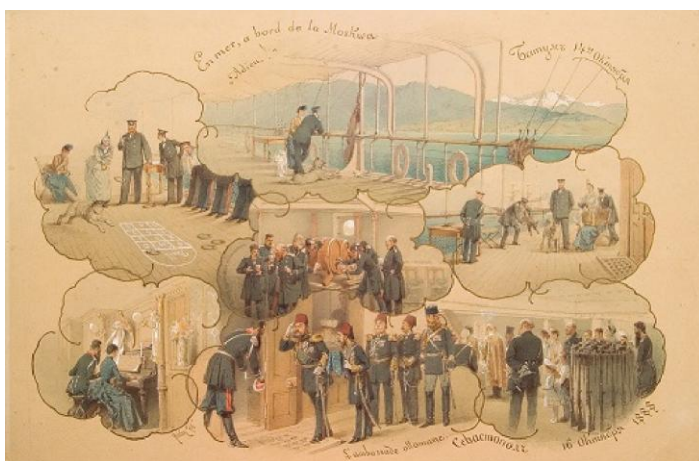 En mer, a bord de la Moskwa
Adieu!
Батумъ 14го Октября
L'ambassade ottomane.
Севастополь
16 Октября 1888.